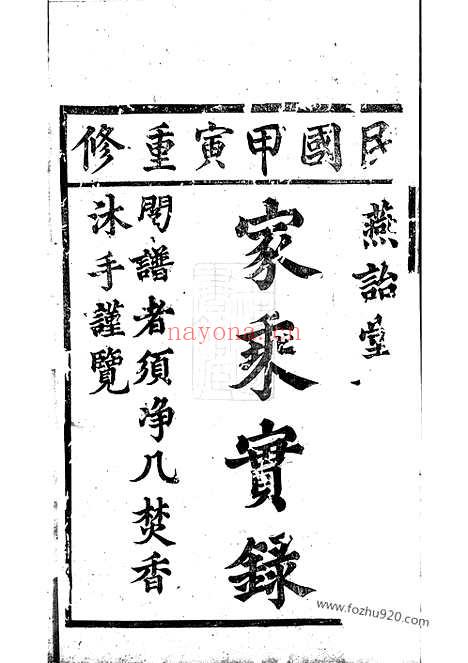 民國甲寅重修
燕詒堂
家乘實錄
閱譜者須净几焚香
沐手謹覽
nayona.cn
www.fozhu920.com